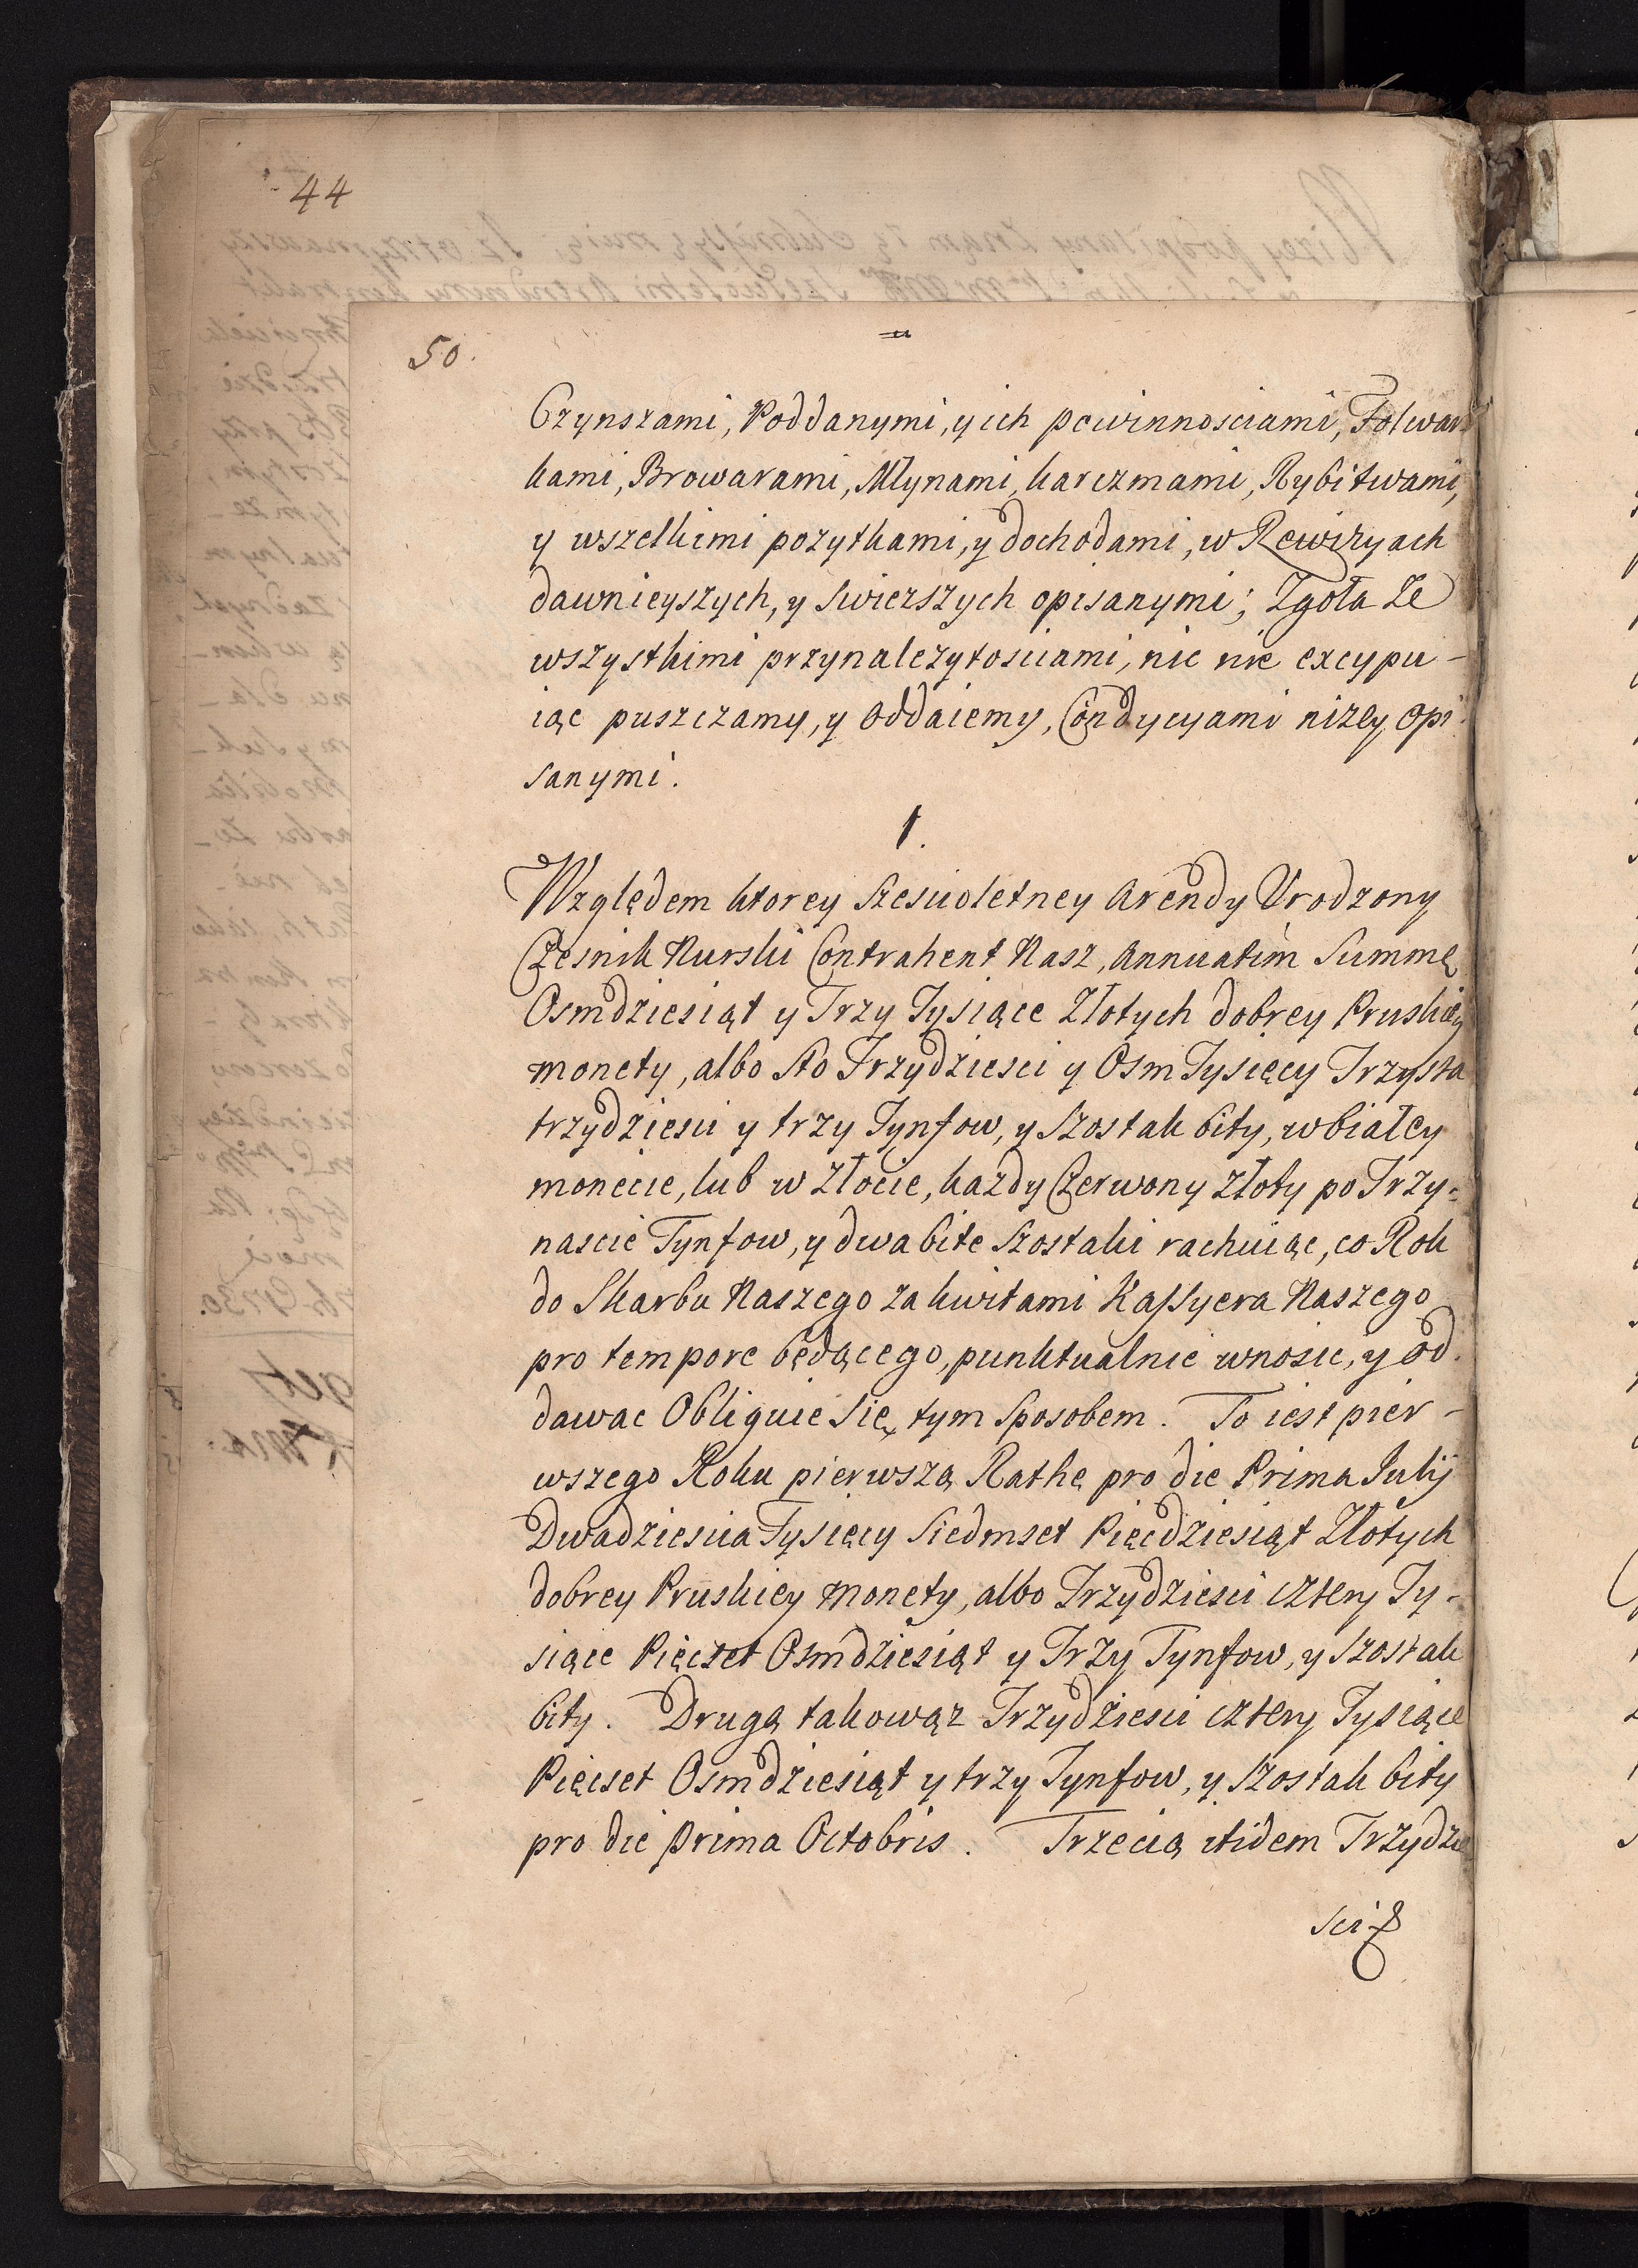 44
50.
Czynszami, Poddanymi, y ich powinnosciami, Folwar
kami, Browarami, Młynami, karczmami, Rybitwami,
y wszelkimi pozytkami, y dochodami, w Rewizyach
dawnieyszych, y swierszych opisanymi; Zgoła Ze
wszystkimi przynalezytosciami, nic nie excypu-
iąc puszczamy, y oddaiemy, Condycyami nizey opi
sanymi.
1.
Względem ktorey szescioletney Arendy Urodzony
Czesnik Nurski Contrahent Nasz, Annuatim Summę
Osmdziesiąt y Trzy Tysiące Złotych dobrey Pruskiey
monety, albo sto Trzydziesci y Osm Tysięcy Trzysta
trzydziesci y trzy Tynfow, y szostak bity, w białey
monecie, lub w złocie, kazdy Czerwony złoty po Trzy=
nascie Tynfow, y dwa bite szostaki rachuiąc, co Rok
do Skarbu Naszego za kwitami Kassyera Naszego
pro tempore będącego, punktualnie wnosic, y od
dawac Obliguie się, tym sposobem. To iest pier-
wszego Roku pierwszą Rathę pro die Prima Julij
Dwadziescia Tysięcy Siedmset Pięcdziesiąt Złotych
dobrey Pruskiey monety, albo Trzydziesci cztery Ty-
siące Pięcset Osmdziesiąt y Trzy Tynfow, y szostak
bity. Drugą takowąz Trzydziesci cztery Tysiące
Pięcset Osmdziesiąt y trzy Tynfow, y szostak bity
pro die prima Octobris. Trzecią itidem Trzydzie
sci